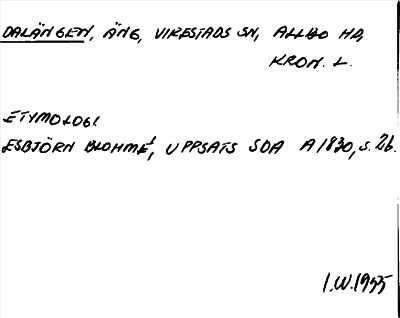 DALÄNGEN, ÄNG, VIRESTADS SN, ALLBO HD,
KRON. L.
ETYMOLOGI
ESBJÖRN BLOHMÉ, UPPSATS SOA A 1830, S. 26.
I.W. 1955